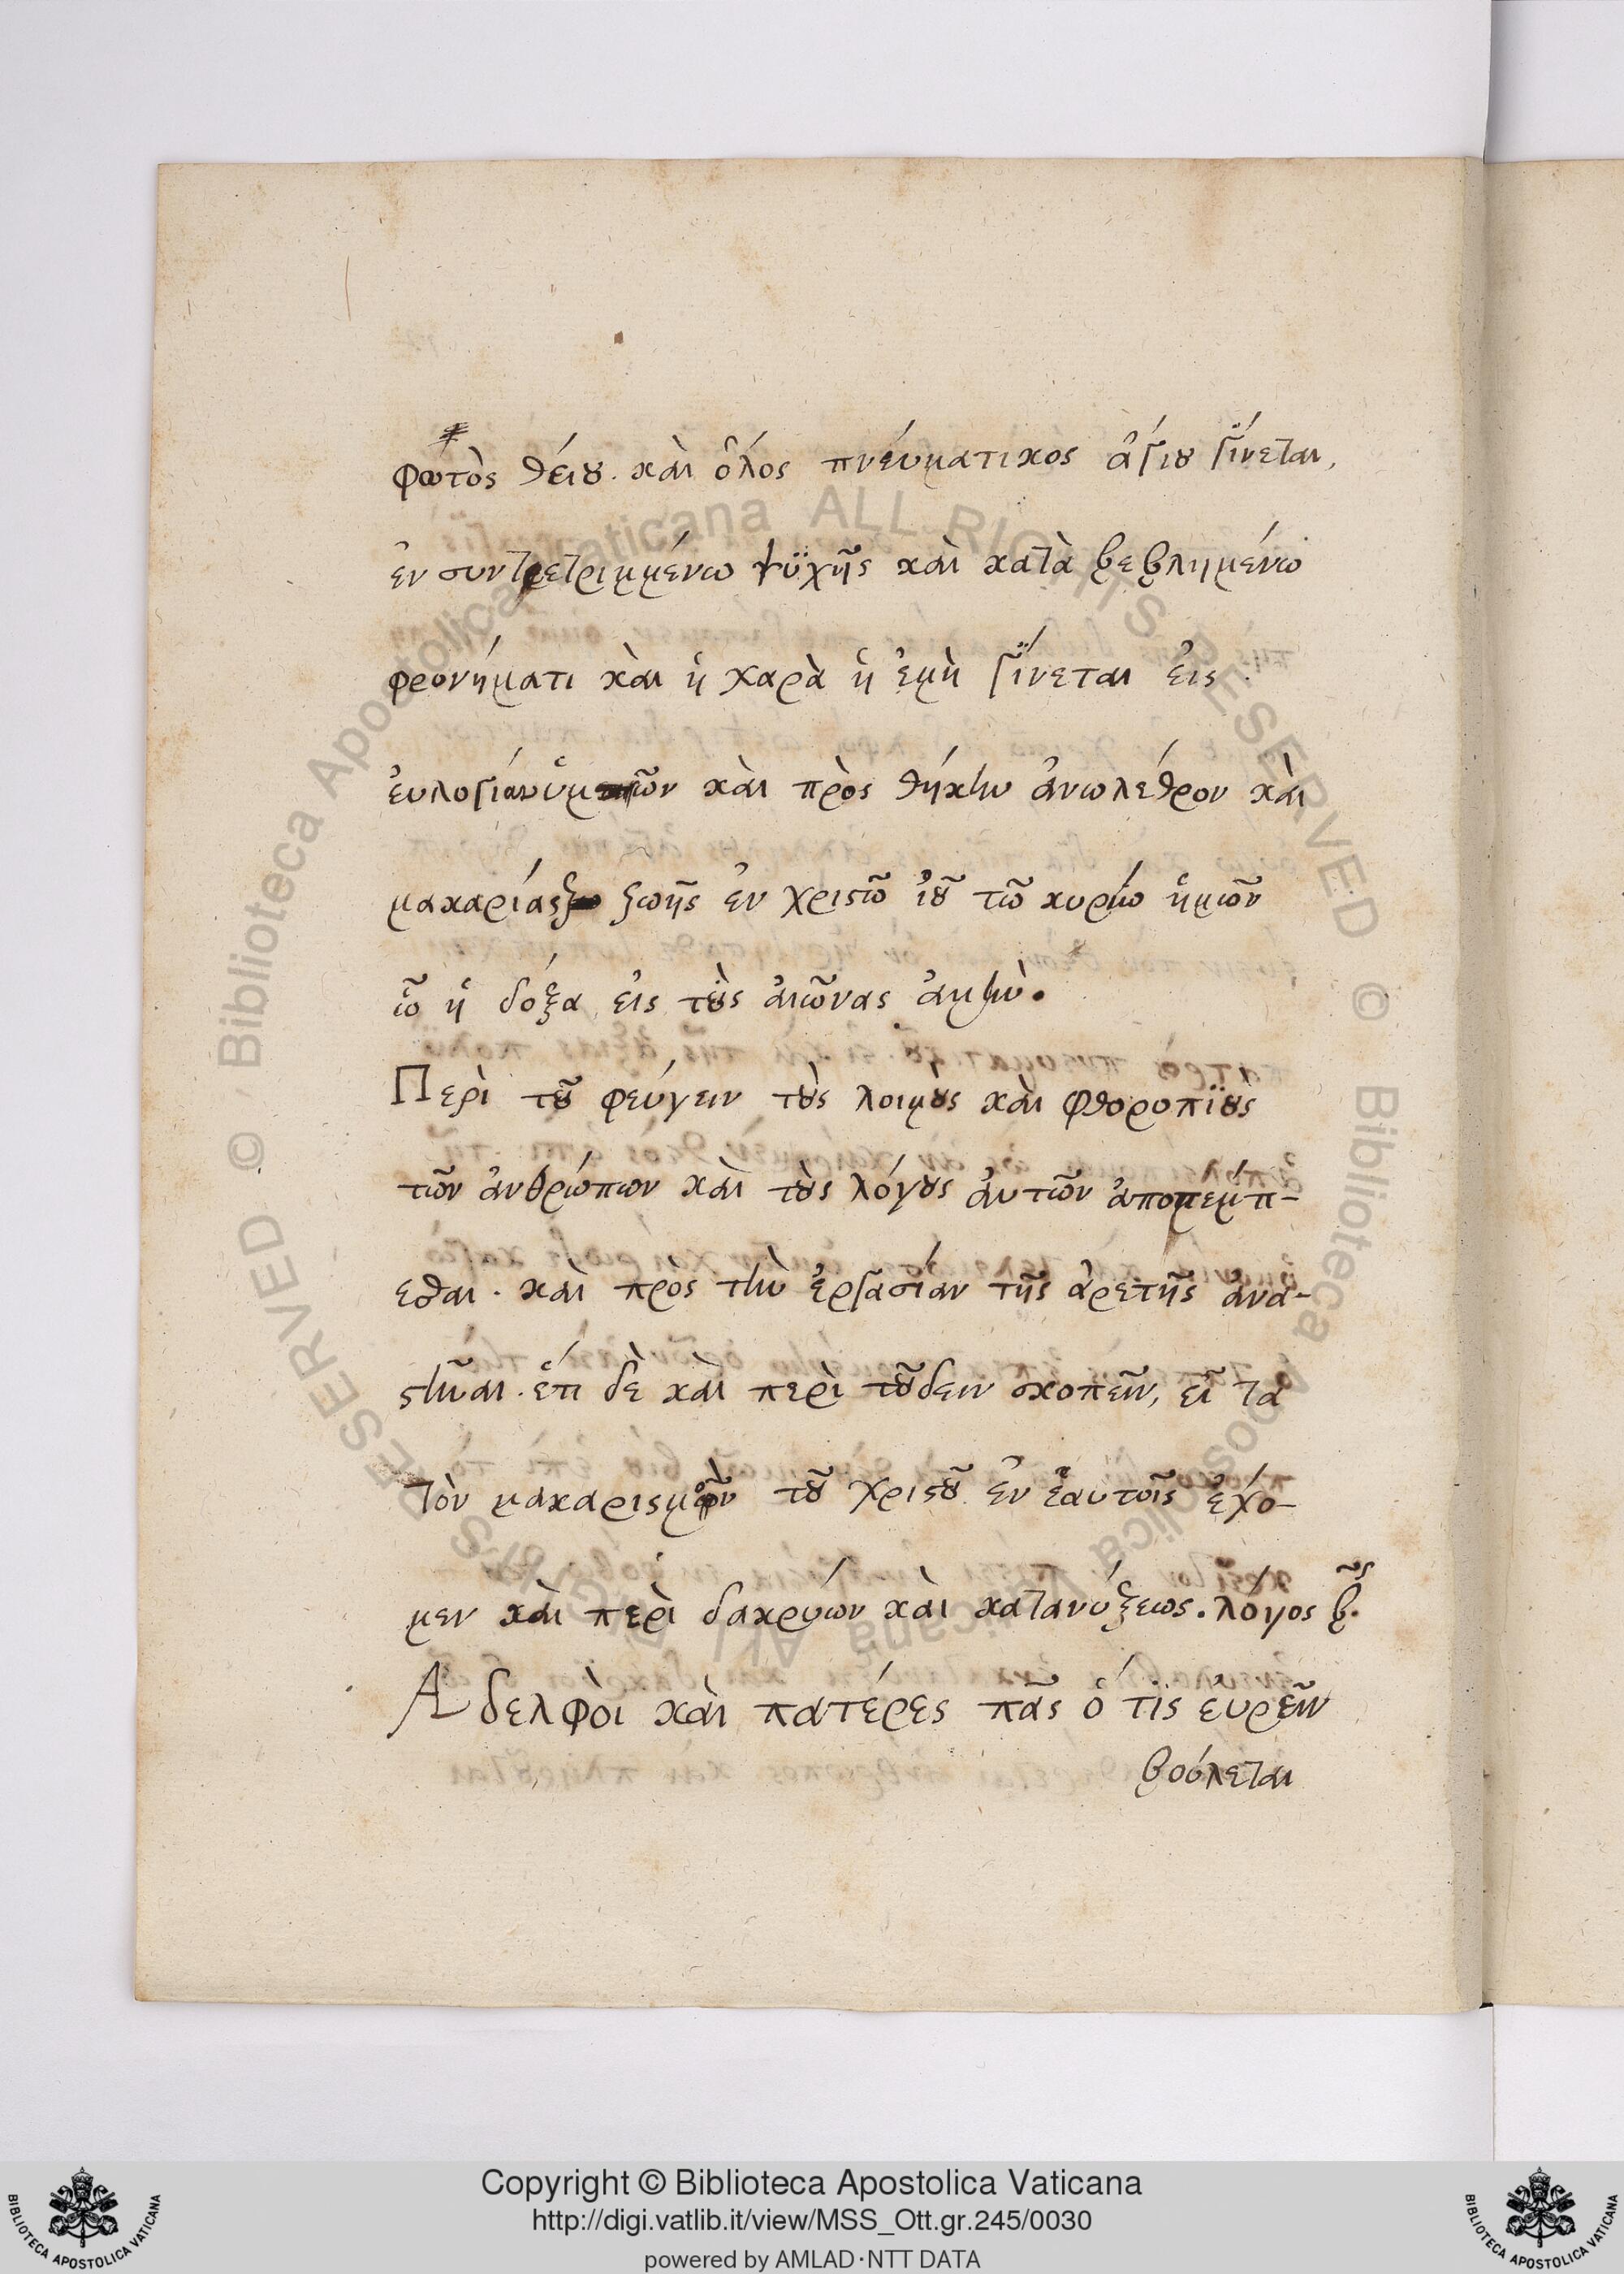 φωτὸς θέιου. κὰι ὅλος πνέυματικος ἁγίου γΐνεται,
ἐν συντετριμμένω ψϋχῆς κὰι κατὰ βεβλημένω
φρονήματι κὰι ἡ χαρὰ ἡ ἐμὴ γΐνεται ἐις
ἐυλογίαν ὑμῶν κὰι πρὸς θήκην ἀνωλέθρον κὰι
μακαρίας ζωῆς ἐν χριστῶ ἰῦ τῶ κυρίω ἡμῶν
ὧ ἡ δόξα ἐις τοὺς ἀιῶνας ἀμὴν.
Περὶ τοῦ φεύγειν τοὺς λοιμοὺς κὰι φθοροπϊοὺς
τῶν ἀνθρώπων κὰι τοὺς λόγους ἀυτῶν ἀποπεμπ-
εσθαι. κὰι πρὸς τὴν ἐργασίαν τῆς ἀρετῆς ἀνα-
στῆναι. ἔπι δὲ κὰι περὶ τοῦδειν σκοπεῖν, εἶ τα
τὸν μακαρισμὸν τοῦ χριστοῦ ἐν ἑαυτοῖς ἔχο-
μεν κὰι περὶ δακρύων κὰι κατανύξεως. λόγος β͂ς.
Αδελφὸι κὰι πατέρες πᾶς ὅ τις ἐυρεῖν
βούλεται
Copyright © Biblioteca Apostolica Vaticana
http://digi.vatlib.it/view/MSS_Ott.gr.245/0030
powered by AMLAD·NTT DATA
BIBLIOTECA APOSTOLICA VATICANA
BIBLIOTECA APOSTOLICA VATICANA
© Biblioteca Apostolica Vaticana ALL RIGHTS RESERVED
© Biblioteca Apostolica Vaticana ALL RIGHTS RESERVED